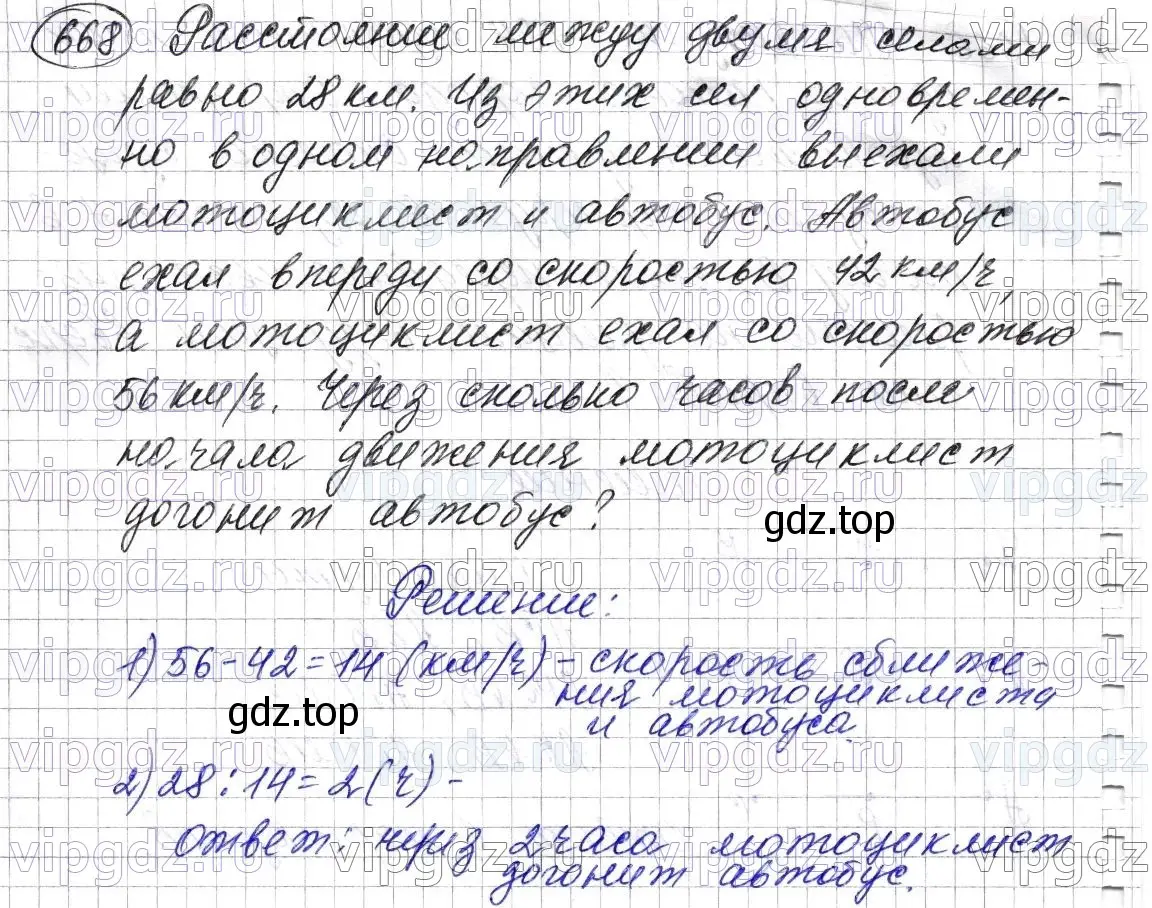 668 Расстояние между двумя селами
равно 28 км. Из этих сел одновремен-
но в одном направлении выехали
мотоциклист и автобус. Автобус
ехал впереди со скоростью 42 км/ч,
а мотоциклист ехал со скоростью
56 км/ч. Через сколько часов после
начала движения мотоциклист
догонит автобус?
gdz.top
Решение:
1) 56 - 42 = 14 (км/ч) - скорость сближе-
ния мотоциклиста
и автобуса.
gdz.top
2) 28 : 14 = 2 (ч) -
ответ: через 2 часа мотоциклист
догонит автобус.
vipgdz.ru